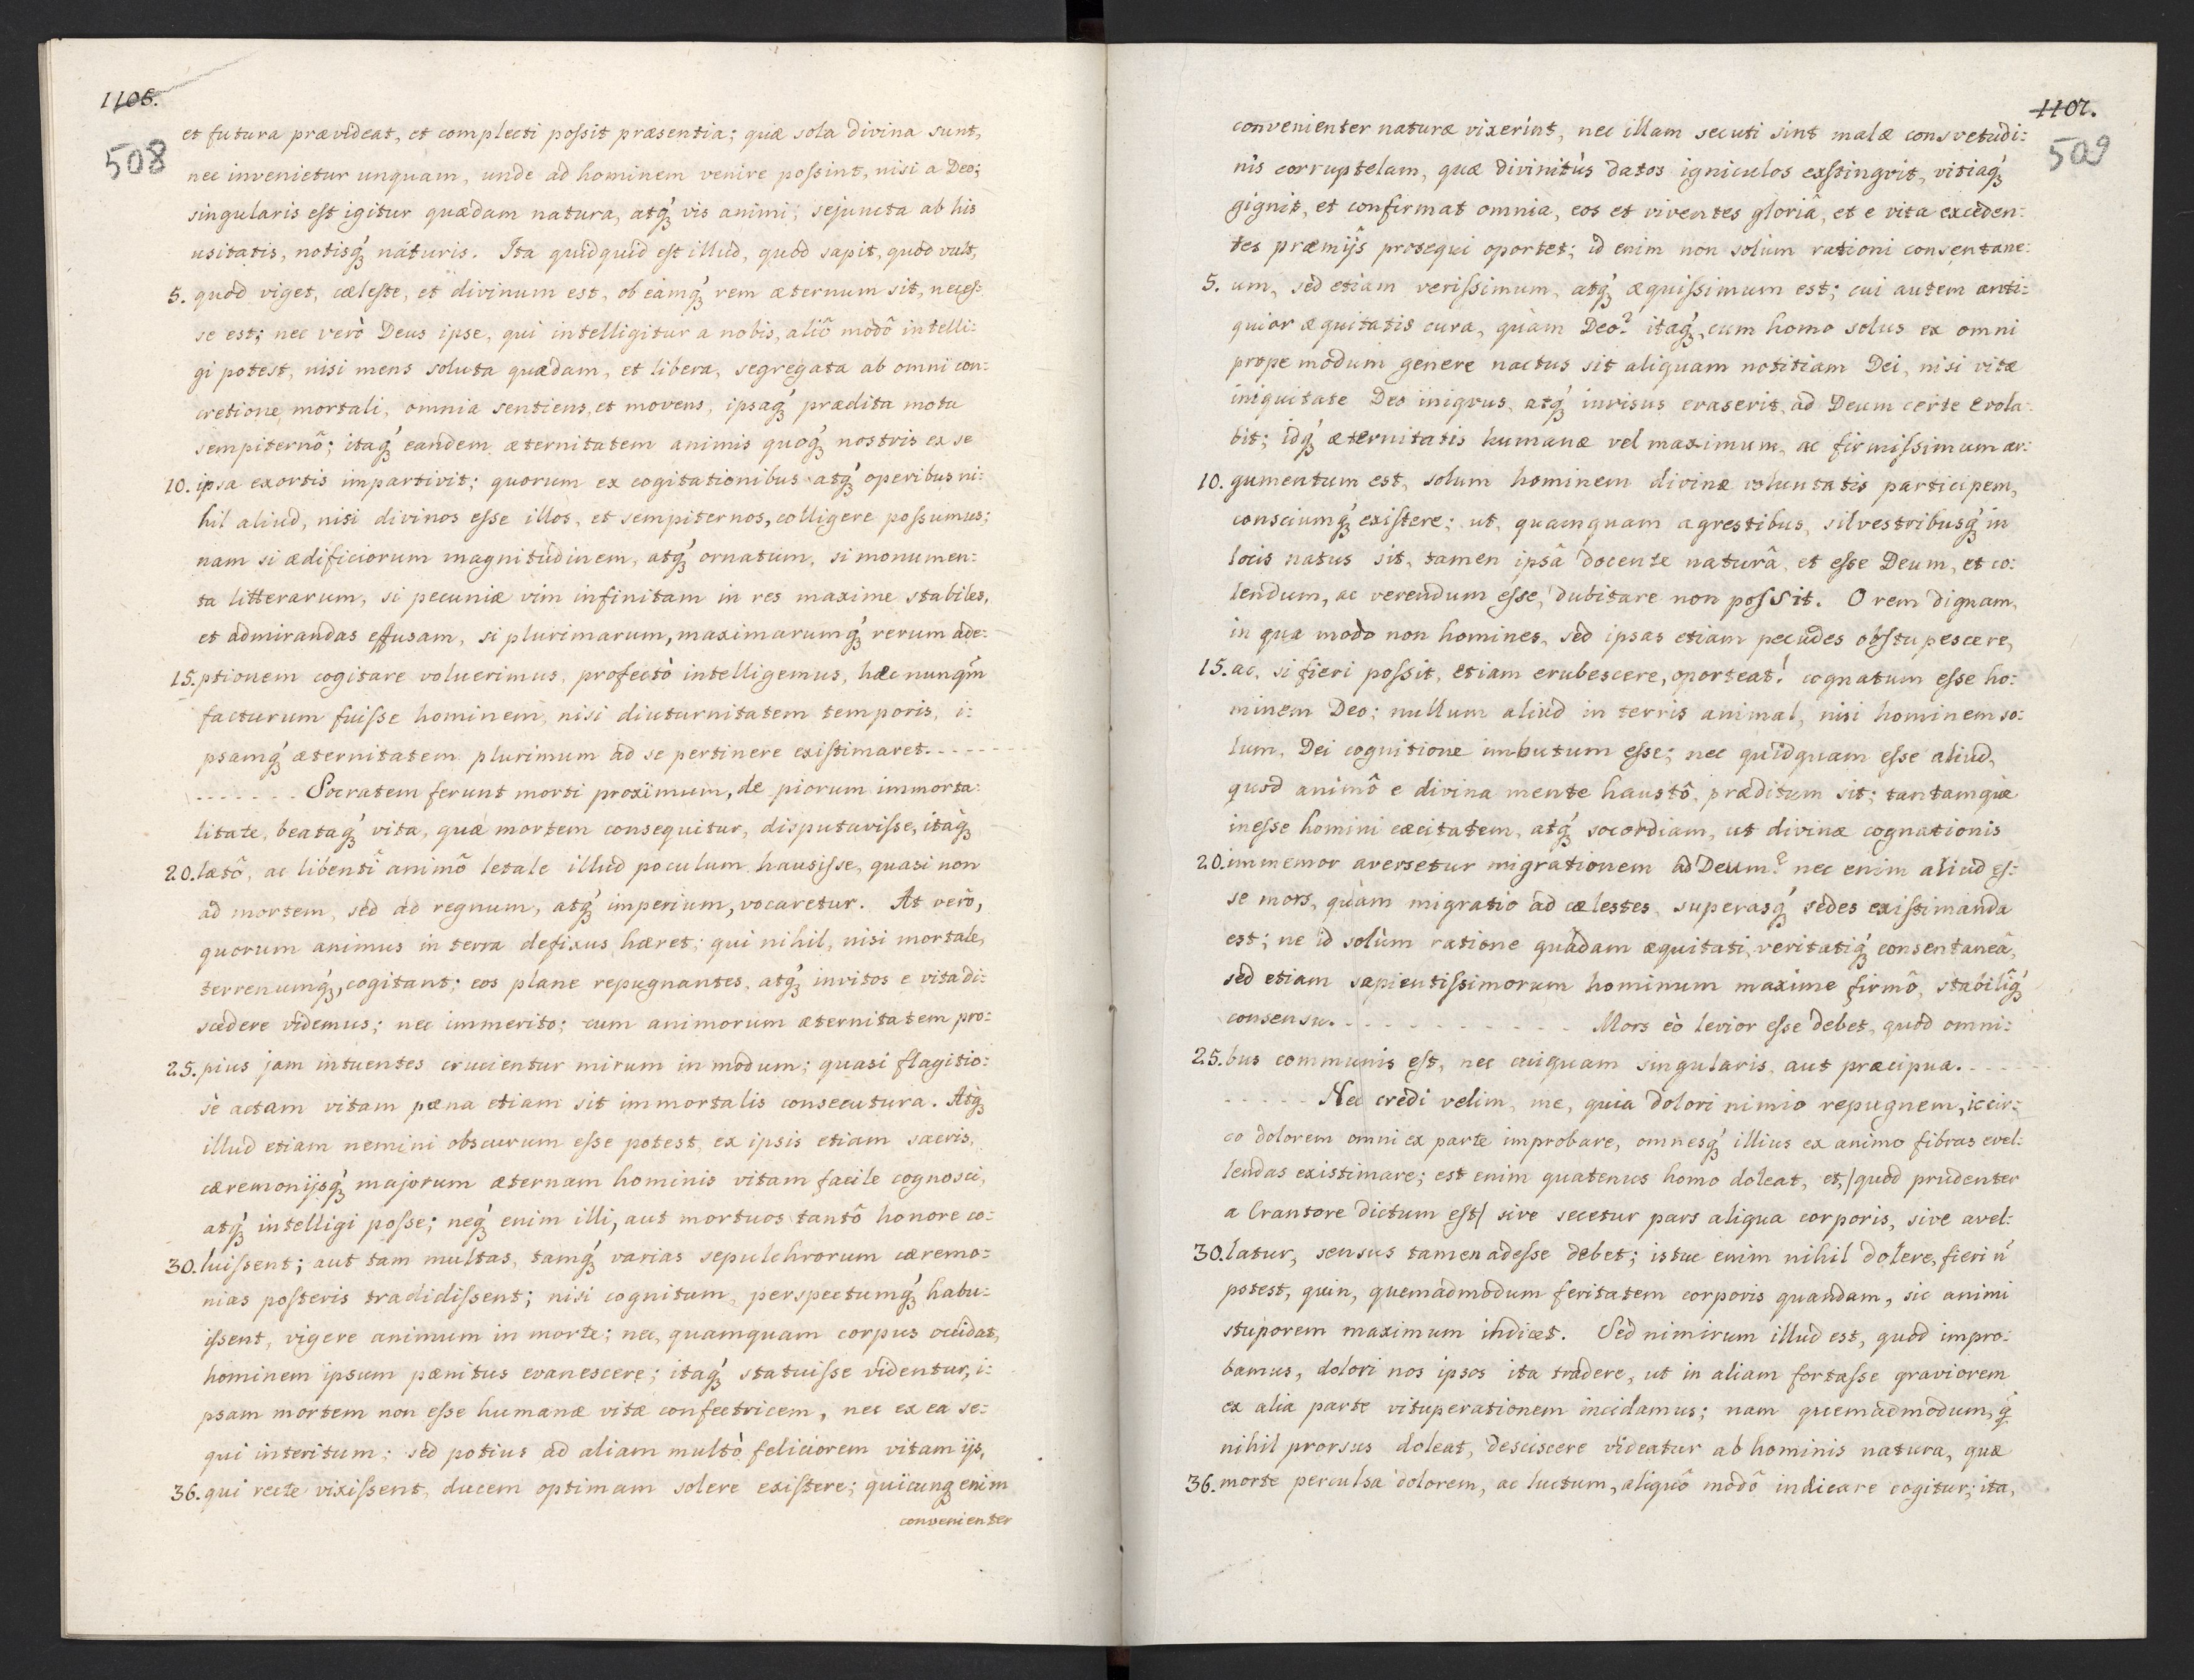 1106.
508
et futura prævideat, et complecti poſsit præsentia; quæ sola divina sunt,
nec invenietur unquam, unde ad hominem venire poſsint, nisi a Deo;
singularis eſt igitur quædam natura, atq́ꝫ vis animi; sejuncta ab his
usitatis, notisq́ꝫ naturis. Ita quidquid eſt illud, quod sapit, quod vult,
5. quod viget, cæleſte, et divinum est, ob eamq́ꝫ rem æternum sit, neceſ:
se est; nec verò Deus ipse, qui intelligitur a nobis, aliô modô intelli:
gi potest, nisi mens soluta quædam, et libera, segregata ab omni con:
cretione mortali, omnia sentiens, et movens, ipsaq́ꝫ prædita motu
sempiternô; itaq́ꝫ eandem æternitatem animis quoq́ꝫ nostris ex se
10. ipsa exortis impartivit; quorum ex cogitationibus atq́ꝫ operibus ni:
hil aliud, nisi divinos eſse illos, et sempiternos, colligere poſsumus;
nam si ædificiorum magnitudinem, atq́ꝫ ornatum, si monumen:
ta litterarum, si pecuniæ vim infinitam in res maxime stabiles,
et admirandas effusam, si plurimarum, maximarumq́ꝫ rerum ade:
15. ptionem cogitare voluerimus, profectò intelligemus, hæc nunqm̃
facturum fuiſse hominem, nisi diuturnitatem temporis, i:
psamq́ꝫ æternitatem plurimum ad se pertinere exiſtimaret. - - - -
- - - - - - - Socratem ferunt morti proximum, de piorum immorta:
litate, beataq́ꝫ vita, quæ mortem consequitur, disputaviſse, itaq́ꝫ
20. lætô, ac libentî animô letale illud poculum hausiſse, quasi non
ad mortem, sed ad regnum, atq́ꝫ imperium, vocaretur. At verò,
quorum animus in terra defixus hæret; qui nihil, nisi mortale,
terrenumq́ꝫ, cogitant; eos plane repugnantes, atq́ꝫ invitos e vita di:
scedere videmus; nec immerito; cum animorum æternitatem pro:
25. pius jam intuentes crucientur mirum in modum; quasi flagitio:
sè actam vitam pæna etiam sit immortalis consecutura. Atq́ꝫ
illud etiam nemini obscurum eſse potest, ex ipsis etiam sacris,
cæremonijsq́ꝫ majorum æternam hominis vitam facile cognosci,
atq́ꝫ intelligi poſse; neq́ꝫ enim illi, aut mortuos tantô honore co:
30. luiſsent; aut tam multas, tamq́ꝫ varias sepulchrorum cæremo:
nias poſteris tradidiſsent; nisi cognitum, perspectumq́ꝫ habu:
iſsent, vigere animum in morte; nec, quamquam corpus occidat,
hominem ipsum pænitus evanescere; itaq́ꝫ statuiſse videntur, i:
psam mortem non eſse humanæ vitæ confectricem, nec ex ea se:
qui interitum; sed potius ad aliam multò feliciorem vitam ijs,
36. qui recte vixiſsent, ducem optimam solere exiſtere; quicunqꝫ enim
convenienter
1107.
509
convenienter naturæ vixerint, nec illam secuti sint malæ consvetudi:
nis corruptelam, quæ divinitùs datos igniculos exſtingvit, vitiaq́ꝫ
gignit, et confirmat omnia, eos et viventes gloriâ, et e vita exceden:
tes præmijs prosequi oportet; id enim non solùm rationi consentane:
5. um, sed etiam veriſsimum, atq́ꝫ æquiſsimum est; cui autem anti:
quior æquitatis cura, quàm Deo? itaq́ꝫ, cum homo solus ex omni
prope modum genere nactus sit aliquam notitiam Dei, nisi vitæ
iniquitate Deo iniqvus, atq́ꝫ invisus evaserit, ad Deum certe evola:
bit; idq́ꝫ æternitatis humanæ vel maximum, ac firmiſsimum ar:
10. gumentum est, solum hominem divinæ voluntatis participem,
consciumq́ꝫ exiſtere; ut, quamquam agrestibus, silvestribusq́ꝫ in
locis natus sit, tamen ipsâ docente naturâ, et eſse Deum, et co:
lendum, ac verendum eſse, dubitare non poſsit. O rem dignam,
in qua modo non homines, sed ipsas etiam pecudes obſtupescere,
15. ac, si fieri poſsit, etiam erubescere, oporteat! cognatum eſse ho:
minem Deo; nullum aliud in terris animal, nisi hominem so:
lum, Dei cognitione imbutum eſse; nec quidquam eſse aliud,
quod animô e divina mente haustô, præditum sit; tantamque
ineſse homini cæcitatem, atq́ꝫ socordiam, ut divinæ cognationis
20. immemor aversetur migrationem ad Deum? nec enim aliud eſ:
se mors, quàm migratio ad cælestes, superasq́ꝫ sedes exiſtimanda
est; ne id solùm ratione quâdam æquitati, veritatiq́ꝫ consentaneâ,
sed etiam sapientiſsimorum hominum maxime firmô, stabiliq́ꝫ
consensu. - - - - - - - - - - - Mors eò levior eſse debet, quod omni:
25. bus communis eſt, nec cuiquam singularis, aut præcipua. - - - -
- - - - - Nec credi velim, me, quia dolori nimio repugnem, iccir:
co dolorem omni ex parte improbare, omnesq́ꝫ illius ex animo fibras evel:
lendas existimare; est enim quatenus homo doleat, et, /quod prudenter
a Crantore dictum eſt/ sive secetur pars aliqua corporis, sive avel:
30. latur, sensus tamen adeſse debet; istuc enim nihil dolere, fieri ñ
potest, quin, quemadmodum feritatem corporis quandam, sic animi
stuporem maximum indicet. Sed nimirum illud est, quod impro:
bamus, dolori nos ipsos ita tradere, ut in aliam fortaſse graviorem
ex alia parte vituperationem incidamus; nam quemadmodum, q́
nihil prorsus doleat, desciscere videatur ab hominis natura, quæ
36. morte perculsa dolorem, ac luctum, aliquô modô indicare cogitur; ita,